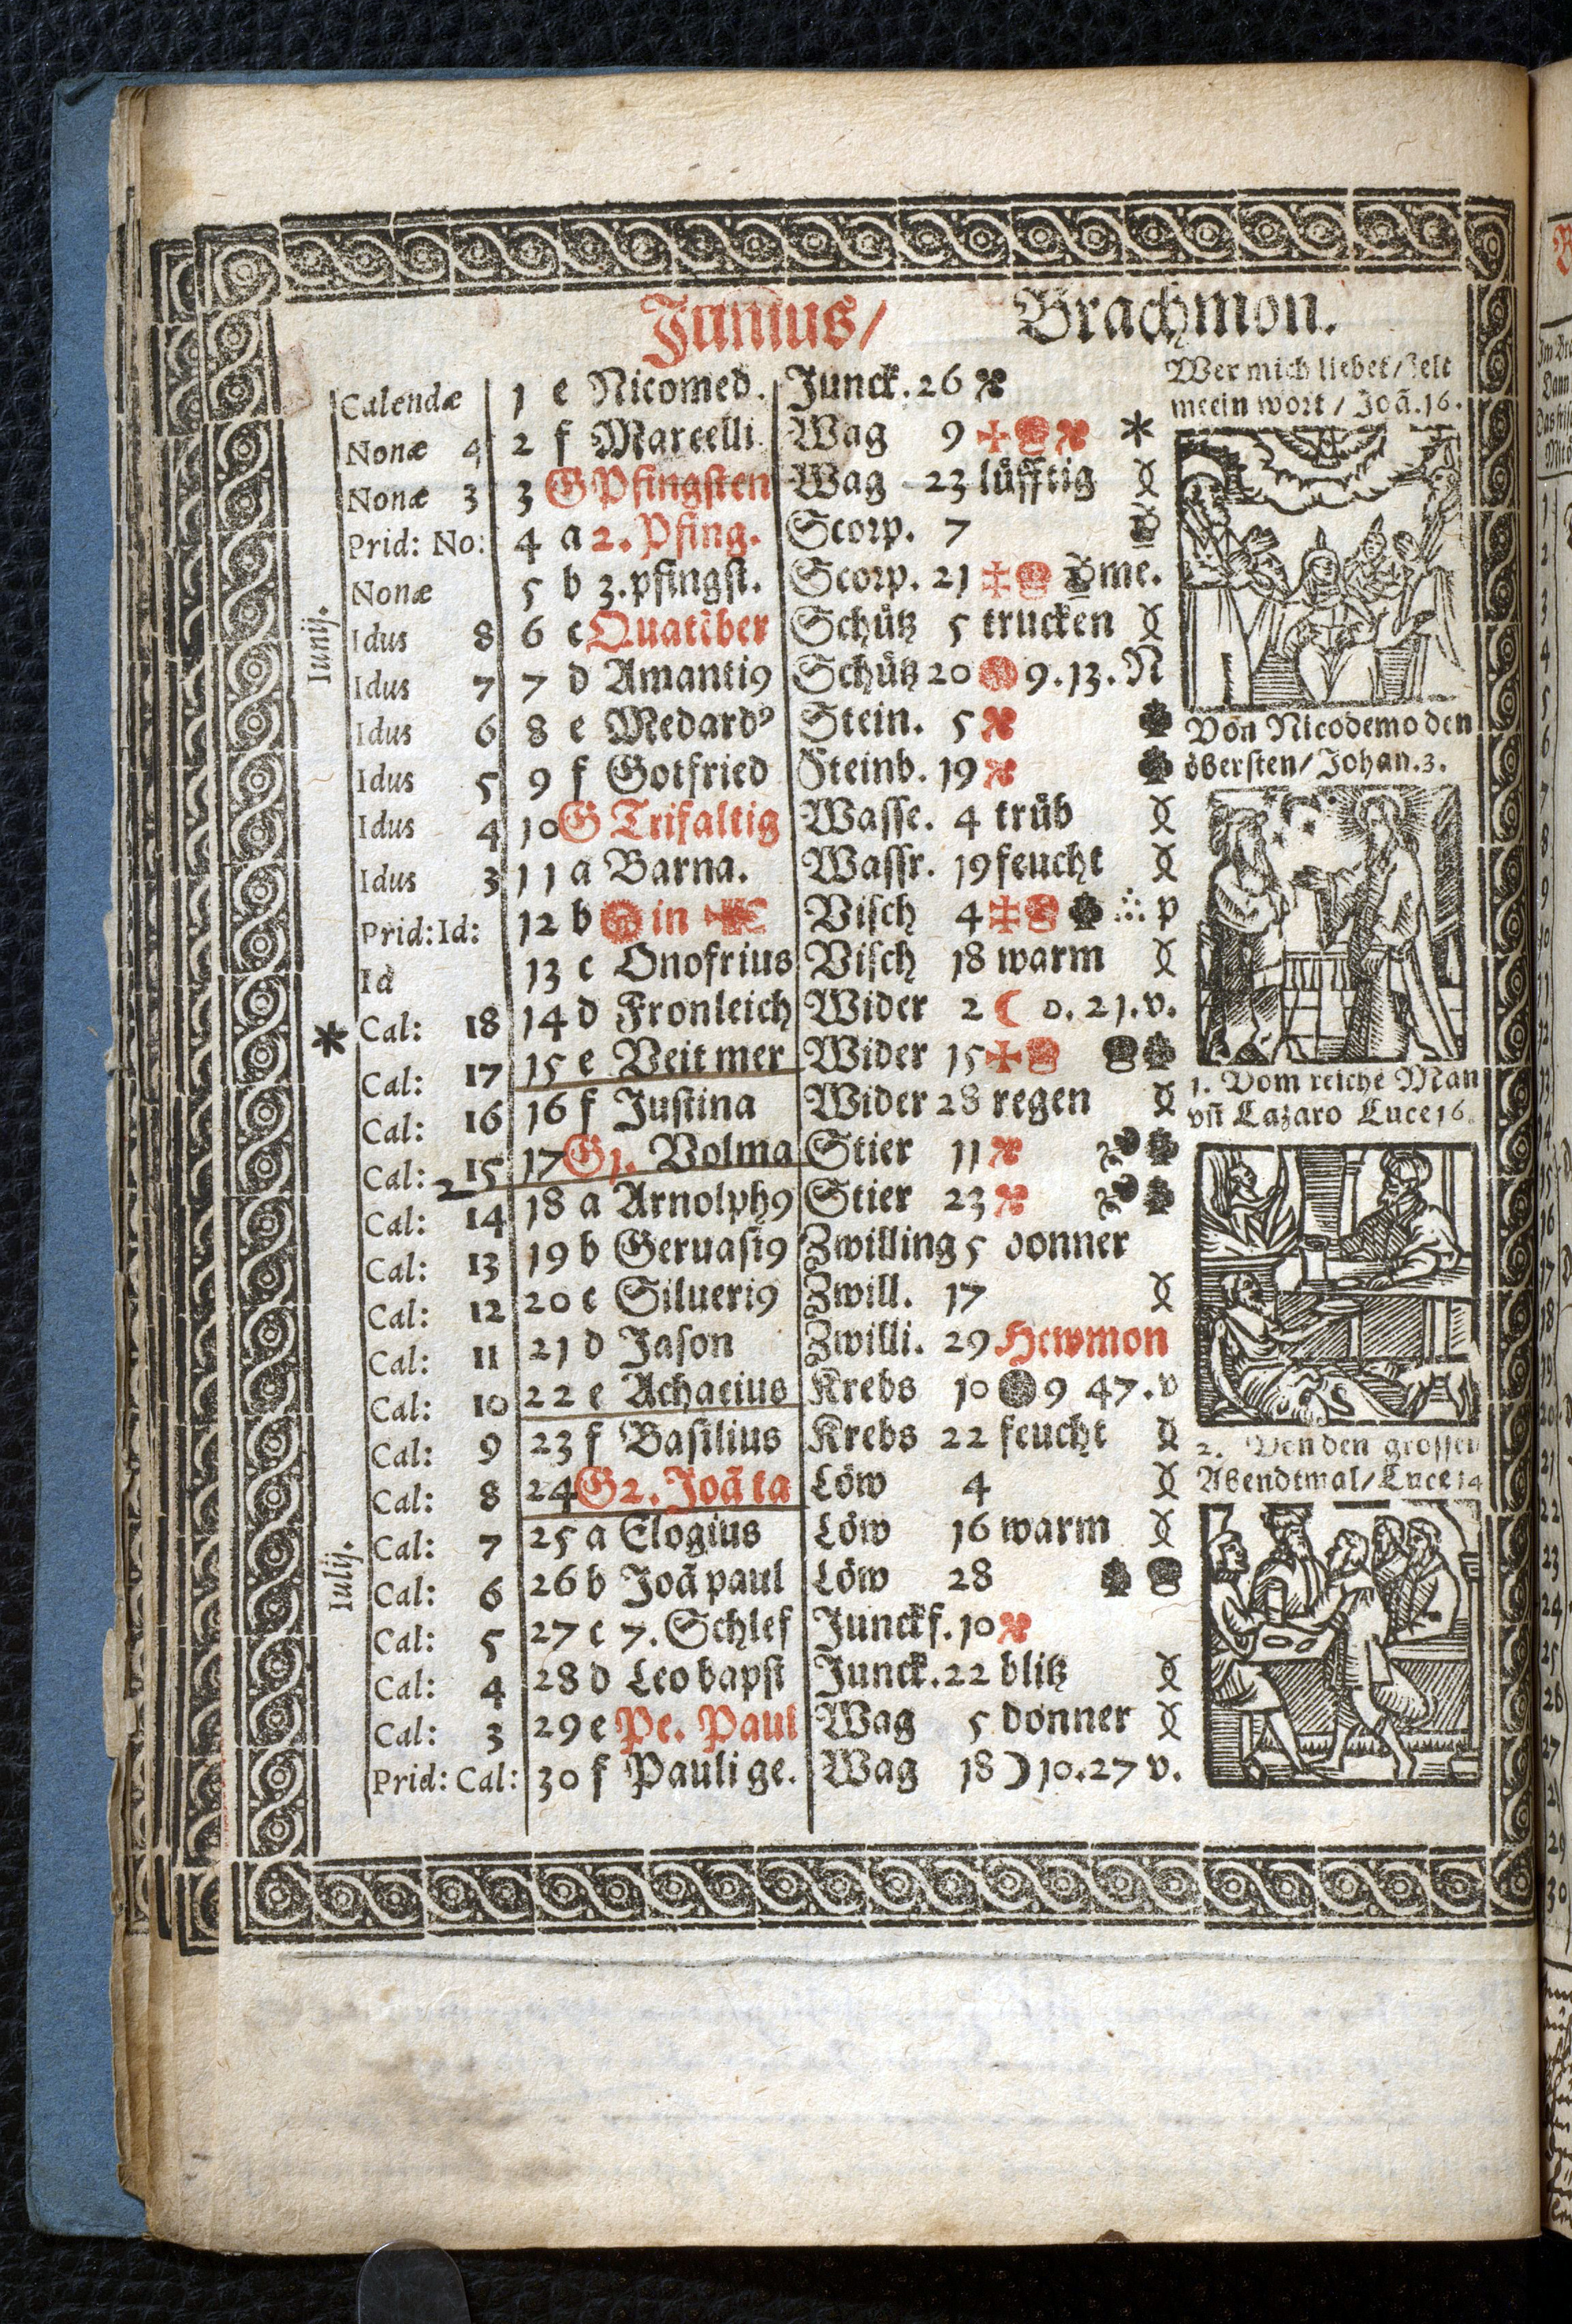 Junius/ Brachmon.
Calendæ 1 e Nicomed. Junck. 26
Nonæ 4 2 f Marcelli Wag 9
Nonæ 3 3 G Pfingsten Wag 23 lüfftig
Prid: No: 4 a 2. Pfing. Scorp. 7
Nonæ 5 b 3. pfingst. Scorp. 21 me.
Idus 8 6 c Quatẽber Schütz 5 trucken
Idus 7 7 d Amanti9 Schütz 20 9. 13. N
Idus 6 8 e Medard9 Stein. 5
Idus 5 9 f Gotfried Steinb. 19
Idus 4 10 G Trifaltig Wasse. 4 trüb
Idus 3 11 a Barna. Wassr. 19 feucht
Prid: Id: 12 b in Visch 4 p
Id 13 c Onofrius Visch 18 warm
* Cal: 18 14 d Fronleich Wider 2 ☾ 0. 21. v.
Cal: 17 15 e Veit mer Wider 15
Cal: 16 16 f Justina Wider 28 regen
Cal: 15 17 G 1. Volma Stier 11
Cal: 14 18 a Arnolph9 Stier 23
Cal: 13 19 b Geruasi9 Zwilling 5 donner
Cal: 12 20 c Silueri9 Zwill. 17
Cal: 11 21 d Jason Zwilli. 29 Hewmon
Cal: 10 22 e Achatius Krebs 10 9 47. v
Cal: 9 23 f Basilius Krebs 22 feucht
Cal: 8 24 G 2. Joã ta Löw 4
Cal: 7 25 a Elogius Löw 16 warm
Cal: 6 26 b Joã paul Löw 28
Cal: 5 27 c 7. Schlef Junckf. 10
Cal: 4 28 d Leo bapst Junck. 22 blitz
Cal: 3 29 e Pe. Paul Wag 5 donner
Prid: Cal: 30 f Pauli ge. Wag 18 ☽ 10. 27 v.
Iunij.
Iulij.
Wer mich liebet/ helt
mein wort / Joã. 16.
Von Nicodemo den
öbersten/ Johan. 3.
1. Vom reichẽ Man
vñ Lazaro Luce 16.
2. Von den grossen
Abendtmal/ Luce 14